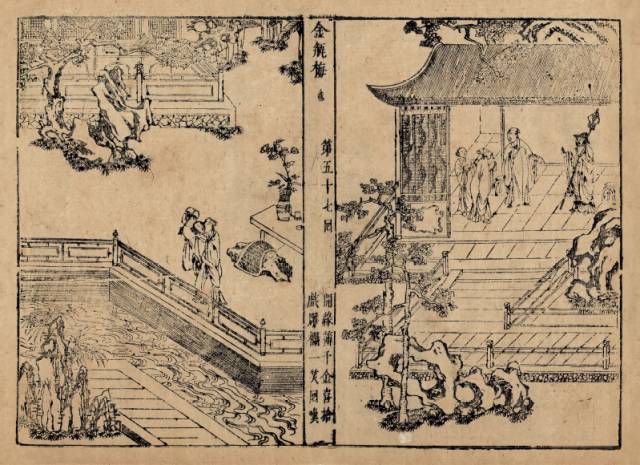 金瓶梅
第五十七回
開緣簿千金喜捨
戲雕欄一笑回嗔